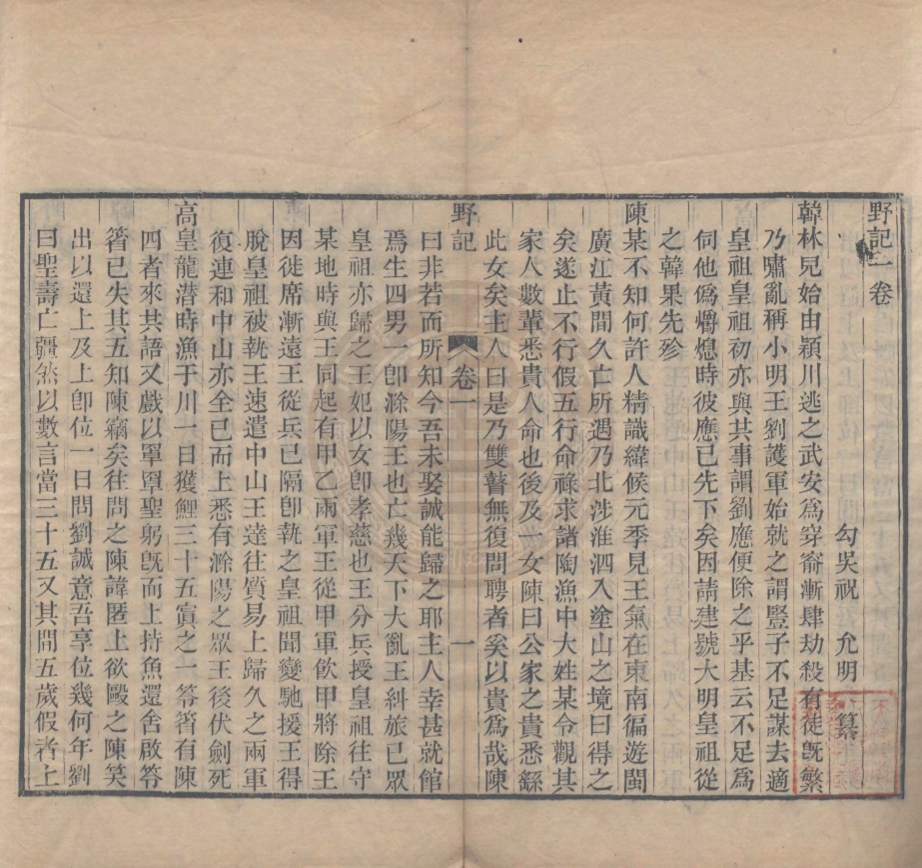 野記一卷
勾吳祝 允明 纂
韓林兒始由潁川逃之武安爲穿窬漸肆劫殺有徒旣繁
乃嘯亂稱小明王劉護軍始就之謂豎子不足謀去適
皇祖皇祖初亦與其事謂劉應便除之乎基云不足爲
伺他僞爝熄時彼應已先下矣因請建號大明皇祖從
之韓果先殄
陳某不知何許人精識緯候元季見王氣在東南徧遊閩
廣江黃間久亡所遇乃北涉淮泗入塗山之境曰得之
矣遂止不行假五行命祿求諸陶漁中大姓某令觀其
家人數輩悉貴人命也後及一女陳曰公家之貴悉繇
此女矣主人曰是乃雙瞽無復問聘者奚以貴爲哉陳
野記
卷一
一
曰非若而所知今吾未娶誠能歸之耶主人幸甚就館
焉生四男一卽滁陽王也亡幾天下大亂王糾旅已眾
皇祖亦歸之王妃以女卽孝慈也王分兵授皇祖往守
某地時與王同起有甲乙兩軍王從甲軍飮甲將除王
因徙席漸遠王從兵已隔卽執之皇祖聞變馳援王得
脫皇祖被執王速遣中山王達往質易上歸久之兩軍
復連和中山亦全已而上悉有滁陽之眾王後伏劍死
高皇龍潛時漁于川一日獲鯉三十五寘之一笭箵有陳
四者來共語又戲以罩罩聖躬旣而上持魚還舍啟笭
箵已失其五知陳竊矣往問之陳諱匿上欲毆之陳笑
出以還上及上卽位一日問劉誠意吾享位幾何年劉
曰聖壽亡疆然以數言當三十五又其間五歲假者上